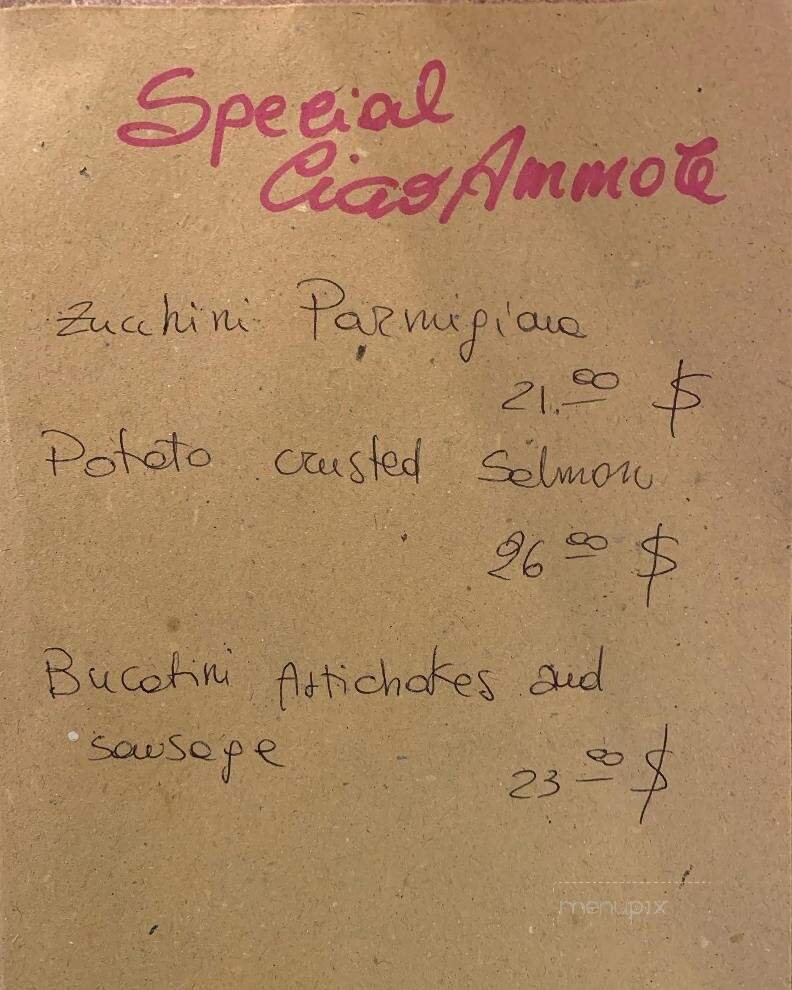 Special
Ciao Ammore
Zucchini Parmigiana
21.00 $
Potato crusted Salmon
26 00 $
Bucatini Artichokes and
sausage
23 00 $
menupix